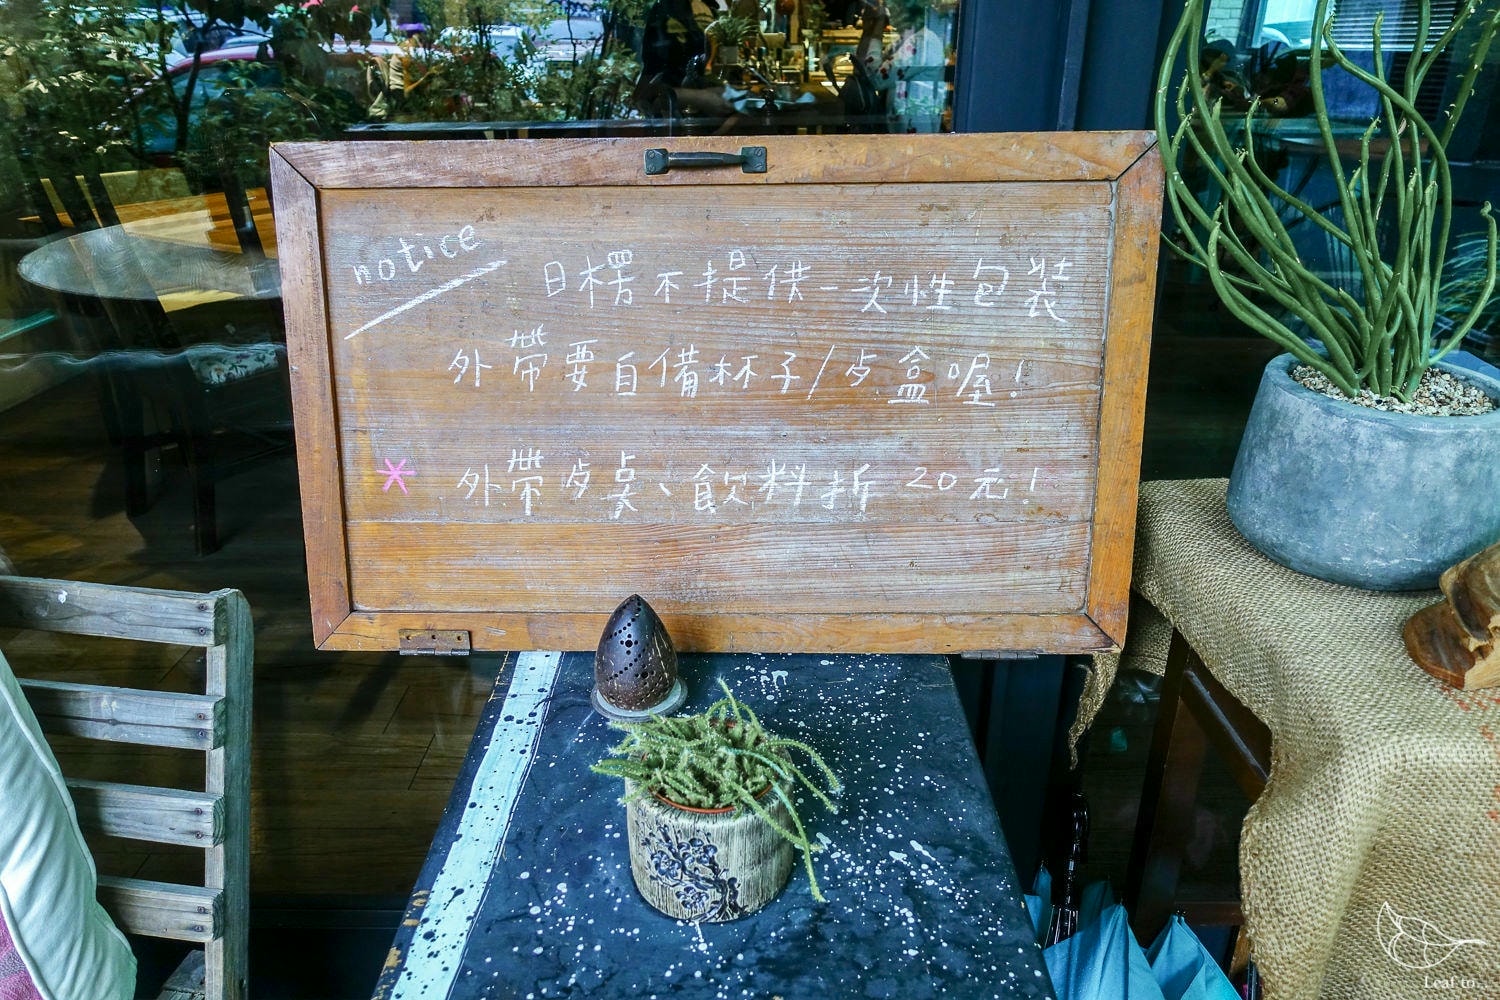 notice
日楞不提供一次性包裝
外帶要自備杯子/歺盒喔!
* 外帶歺桌、飲料折 20元!
Leaf to...